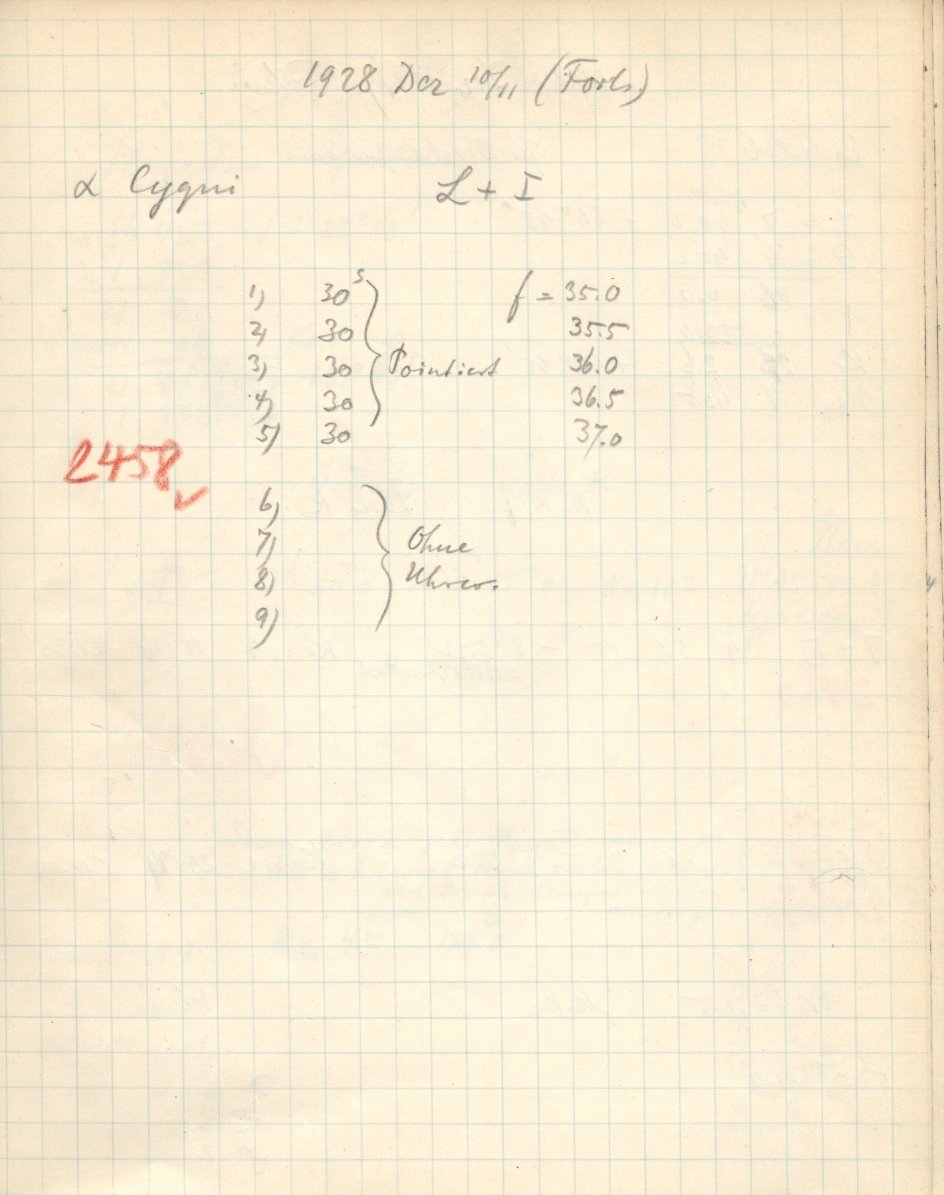 1928 Dez 10/11 (Forts.)
α Cygni L + I
1) 30s f = 35.0
2) 30 35.5
3) 30 Pointiert 36.0
4) 30 36.5
5) 30 37.0
2458 ✓
6)
7) Ohne
8) Uhrw.
9)